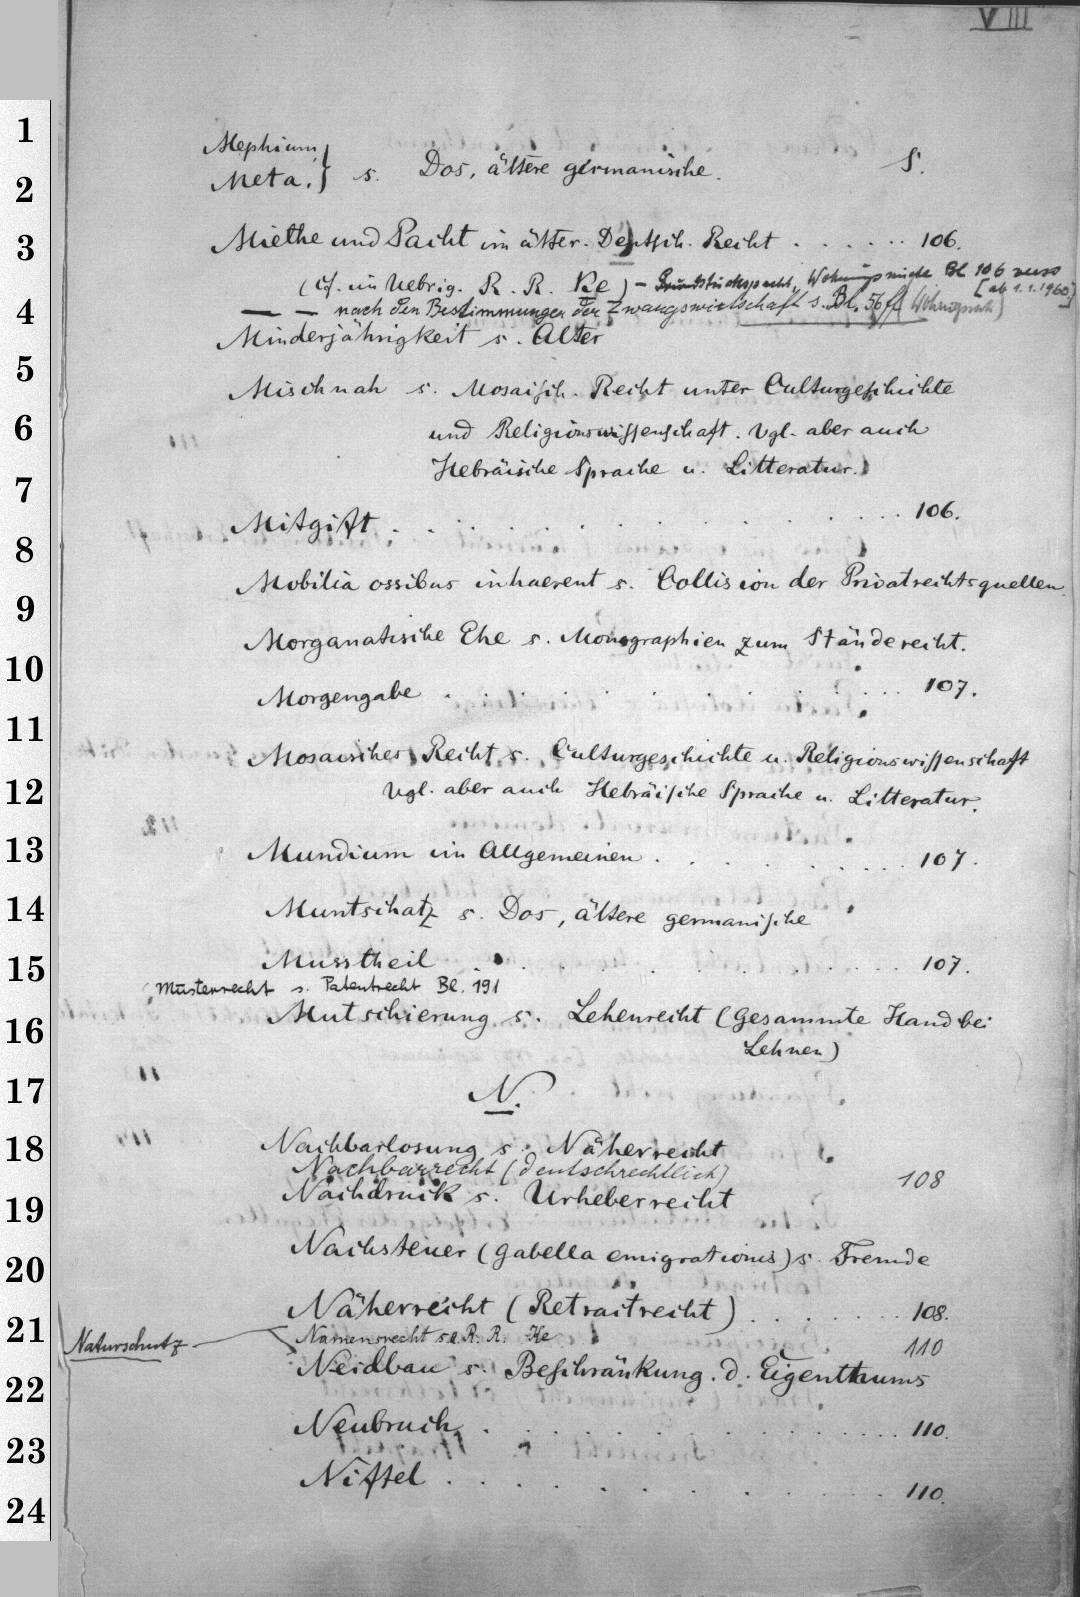 VIII
1
Mephium,
S.
2
Meta. } s. Dos, ältere germanische.
3
Miethe und Pacht im älter. Deutsch. Recht . . . . . . 106.
(cf. im Uebrig. R. R. Re) – Grundstückspacht, Wohnungsmiete Bl 106 verso
[ab 1.1.1960]
4
— — nach den Bestimmungen der Zwangswirtschaft s. Bl. 56 ff
Minderjährigkeit s. Alter
5
Mischnah s. Mosaisch. Recht unter Culturgeschichte
6
und Religionswissenschaft. Vgl. aber auch
Hebräische Sprache u. Litteratur.
7
Mitgift . . . . . . . . . . . . 106.
8
Mobilia ossibus inhaerent s. Collision der Privatrechtsquellen.
9
Morganatische Ehe s. Monographien zum Ständerecht.
10
Morgengabe . . . . . . . . . . . 107.
11
Mosaisches Recht s. Culturgeschichte u. Religionswissenschaft
12
Vgl. aber auch Hebräische Sprache u. Litteratur.
13
Mundium im Allgemeinen . . . . . . . . 107.
14
Muntschatz s. Dos, ältere germanische
15
Musstheil . . . . . . . . . . . 107.
Musterrecht s. Patentrecht Bl. 191
16
Mutschierung s. Lehenrecht (Gesammte Hand bei
Lehnen)
17
N.
18
Nachbarlosung s. Näherrecht
Nachbarrecht (deutschrechtlich) 108
19
Nachdruck s. Urheberrecht
20
Nachsteuer (gabella emigrationis) s. Fremde
21
Näherrecht (Retraitrecht) . . . . . . . 108.
Namensrecht s. R. R. He
Naturschutz 110
22
Neidbau s. Beschränkung. d. Eigenthums
23
Neubruch . . . . . . . . . . . . 110.
24
Niftel . . . . . . . . . . . . 110.